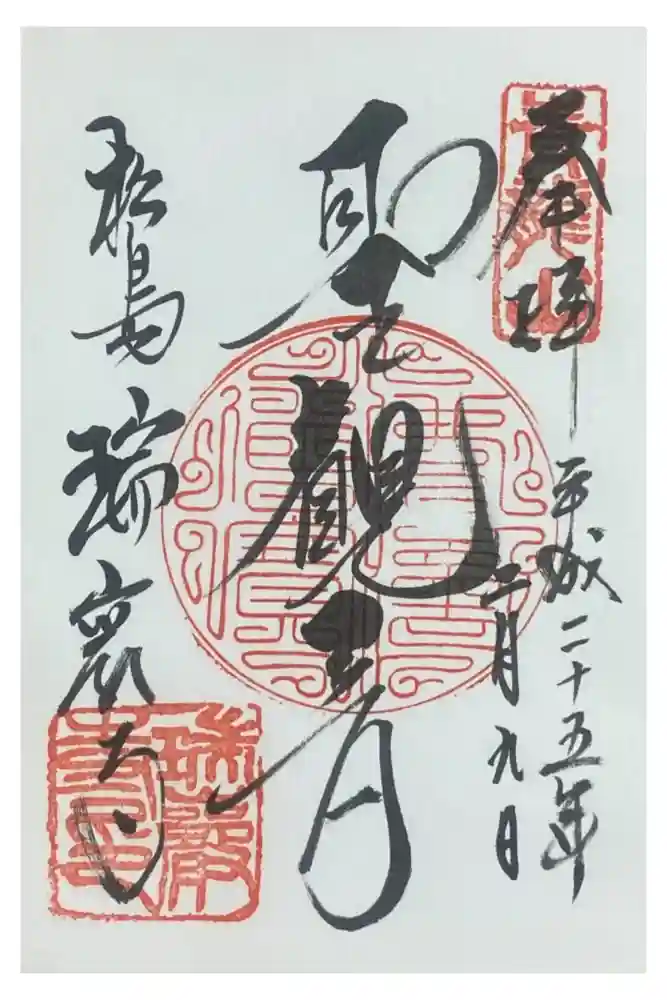 奉拝
平成二十五年
二月九日
聖観音
松島 瑞巌寺
青龍山